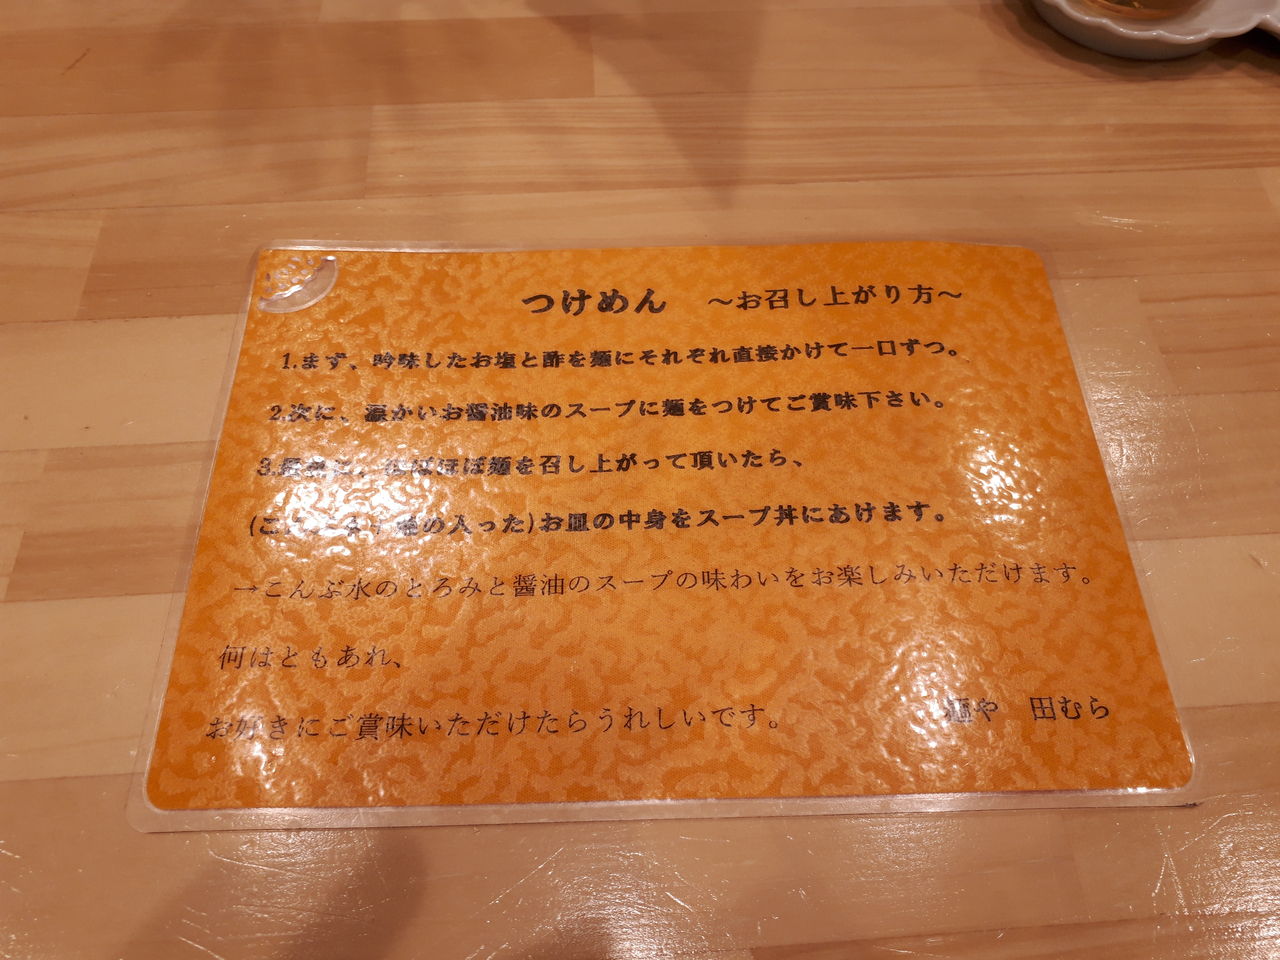 つけめん ～お召し上がり方～
1.まず、吟味したお塩と酢を麺にそれぞれ直接かけて一口ずつ。
2.次に、温かいお醤油味のスープに麺をつけてご賞味下さい。
3. ほぼ麺を召し上がって頂いたら、
の入った)お皿の中身をスープ丼にあけます。
→こんぶ水のとろみと醤油のスープの味わいをお楽しみいただけます。
何はともあれ、
お好きにご賞味いただけたらうれしいです。
麺や 田むら